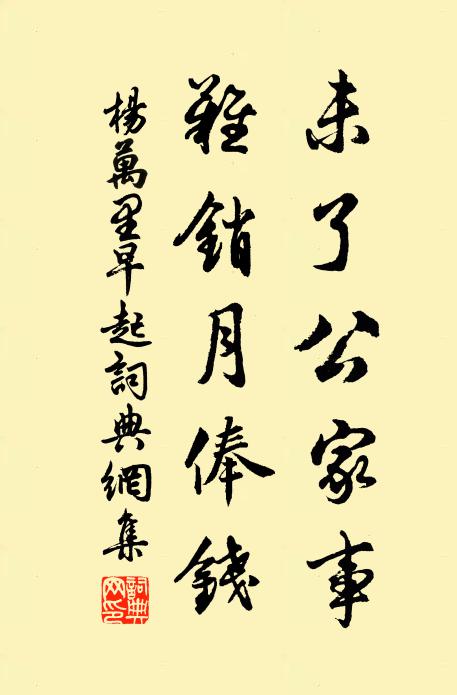 未了公家事
難銷月俸錢
楊萬里早起詞典網集
詞典网印